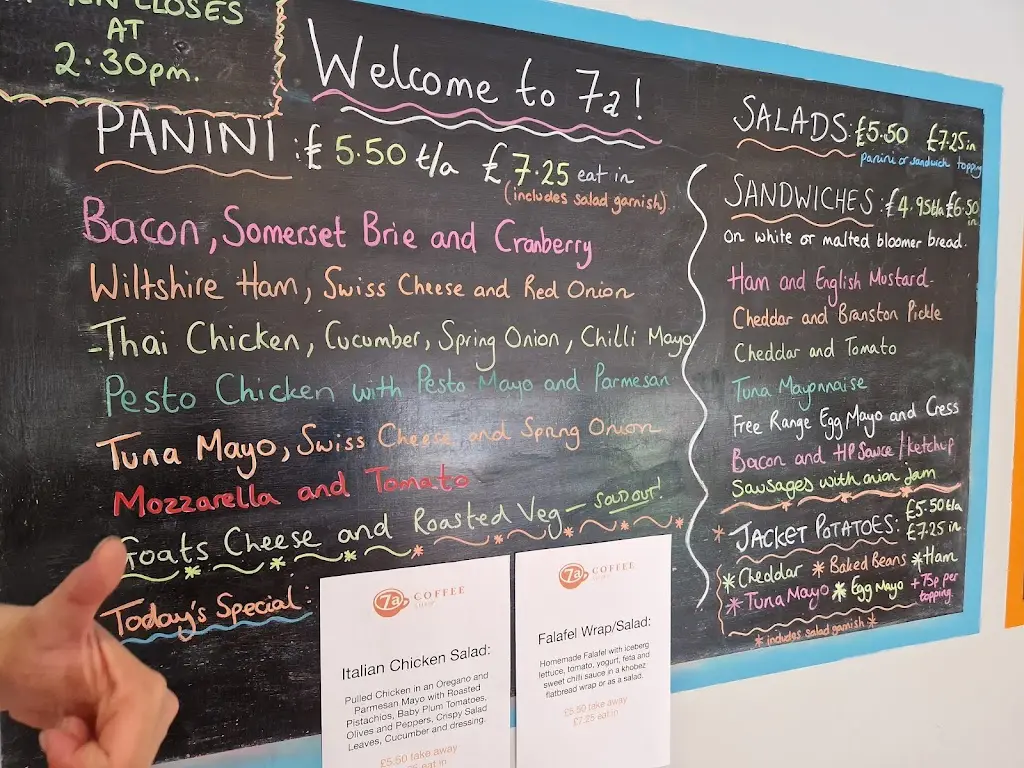 CLOSES
AT
2.30pm.
Welcome to 7a!
PANINI : £5.50 t/a £7.25 eat in
(includes salad garnish)
Bacon, Somerset Brie and Cranberry
Wiltshire Ham, Swiss Cheese and Red Onion
Thai Chicken, Cucumber, Spring Onion, Chilli Mayo
Pesto Chicken with Pesto Mayo and Parmesan
Tuna Mayo, Swiss Cheese and Spring Onion
Mozzarella and Tomato
Goats Cheese and Roasted Veg - SOLD OUT!
Today's Special:
SALADS: £5.50 £7.25 in
panini or sandwich topping
SANDWICHES: £4.95 t/a £6.50 in
on white or malted bloomer bread.
Ham and English Mustard
Cheddar and Branston Pickle
Cheddar and Tomato
Tuna Mayonnaise
Free Range Egg Mayo and Cress
Bacon and HP Sauce / Ketchup
Sausages with onion jam
* JACKET POTATOES: £5.50 t/a
£7.25 in
* Cheddar * Baked Beans * Ham
* Tuna Mayo * Egg Mayo + 75p per
topping.
* includes salad garnish *
7a COFFEE
Italian Chicken Salad:
Pulled Chicken in an Oregano and
Parmesan Mayo with Roasted
Pistachios, Baby Plum Tomatoes,
Olives and Peppers, Crispy Salad
Leaves, Cucumber and dressing.
£5.50 take away
eat in
7a COFFEE
Falafel Wrap/Salad:
Homemade Falafel with iceberg
lettuce, tomato, yogurt, feta and
sweet chilli sauce in a khobez
flatbread wrap or as a salad.
£5.50 take away
£7.25 eat in